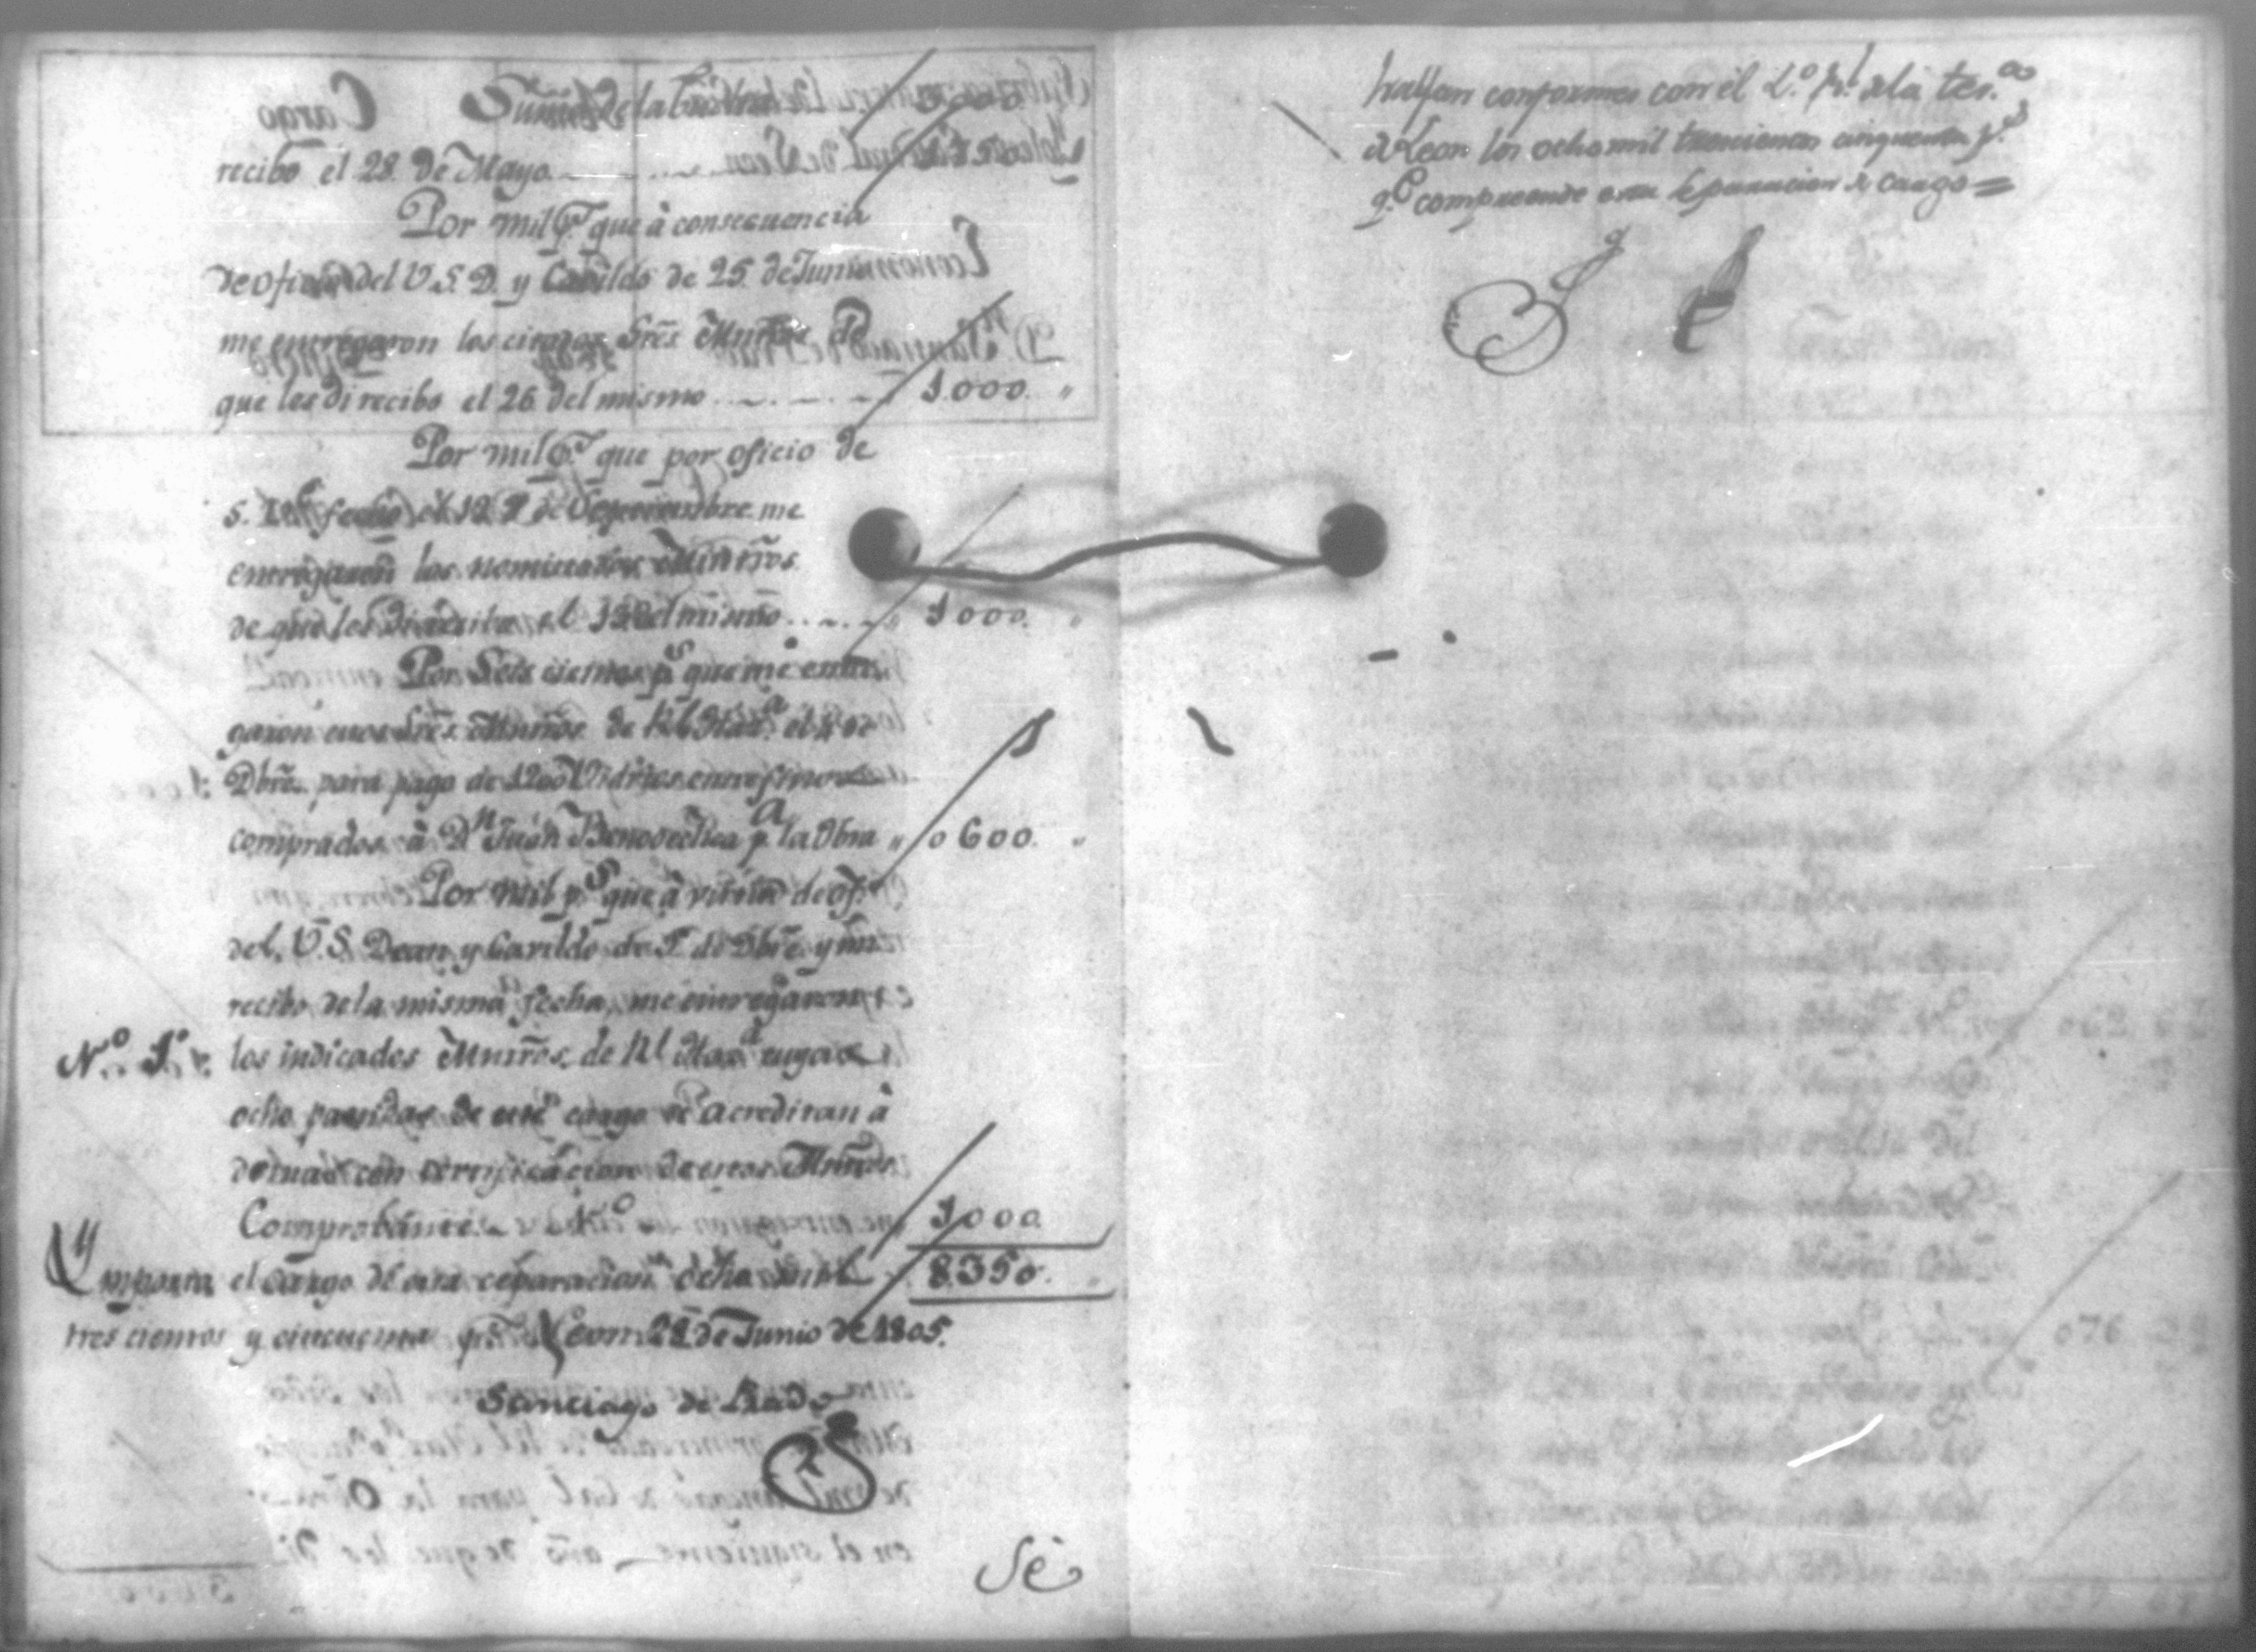 Suma de la buelta
recibo el 28. de Mayo 1750
Por mil p.s que à consecuencia
de oficio del V. S. D. y Cavildo de 25. de Junio
me entregaron los citados Srēs Mnr̄os de
que les di recibo el 26. del mismo 1.000. "
Por mil p.s que por oficio de
fecho el 12 de Septiembre me
entregaron los nominados Mintr̄os
de que les di recibo el 13 del mismo 1000. "
Por Seis cientos p.s que me entre
garon esos Srēs Mnr̄os de Rl Haz.da el 4 de
Dbrē. para pago de 1200 Vidrios entrefinos
comprados à D.n Juan p.a la Obra " 0600. "
Por mil p.s que à virtud de of.o
del V. S. Dean y Cavildo de 1.o de Dbrē. y mi
recibo de la misma fecha, me entregaron
N.o 1.o los indicados Mnr̄os. de Rl Haz.da cuyas
ocho partidas de este cargo se acreditan à
con certificacion de esos Mnr̄os.
Comprobante N.o 1000.
Ymporta el cargo de esta ceparacion ocho mil 8350. "
tres cientos y cincuenta p.s Leon 28 de Junio de 1805.
Santiago de Prado
Se
hallan conformes con el L.o R.l de la tes.a
de Leon los ocho mil trescientos cinquenta p.s
q.e comprende esta separacion de cargo =